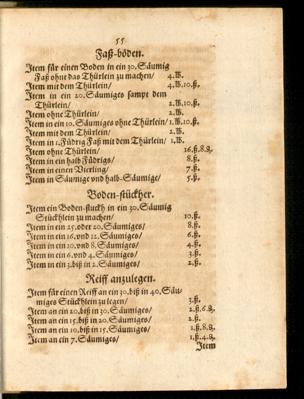 55
Faß-böden.
Item für einen Boden in ein 30. Säumig
Faß ohne das Thürlein zu machen/ 4.℔.
Item mit dem Thürlein/ 4.℔.10.ß.
Item in ein 20. Säumiges sampt dem
Thürlein/ 2.℔.10.ß.
Item ohne Thürlein/ 2.℔.
Item in ein 10. Säumiges ohne Thürlein/ 1.℔.10.ß.
Item mit dem Thürlein/ 2.℔.
Item in 1. Füdrig Faß mit dem Thürlein/ 1.℔.
Item ohne Thürlein/ 16.ß.8.₰.
Item in ein halb Füdrigs/ 8.ß.
Item in einen Vierling/ 7.ß.
Item in Säumige und halb-Säumige/ 5.ß.
Boden-stückher.
Item ein Boden-stuckh in ein 30. Säumig
Stückhlein zu machen/ 10.ß.
Item in ein 25. oder 20. Säumiges/ 8.ß.
Item in ein 16. und 12. Säumiges/ 6.ß.
Item in ein 10. und 8. Säumiges/ 4.ß.
Item in ein 6. und 4. Säumiges/ 3.ß.
Item in ein 3. biß in 2. Säumiges/ 2.ß.
Reiff anzulegen.
Item für einen Reiff an ein 30. biß in 40. Säu-
miges Stückhlein zu legen/ 3.ß.
Item an ein 20. biß in 30. Säumiges/ 2.ß.6.₰.
Item an ein 15. biß in 20. Säumiges/ 2.ß.
Item an ein 10. biß in 15. Säumiges/ 1.ß.8.₰.
Item an ein 7. Säumiges/ 1.ß.4.₰.
Item